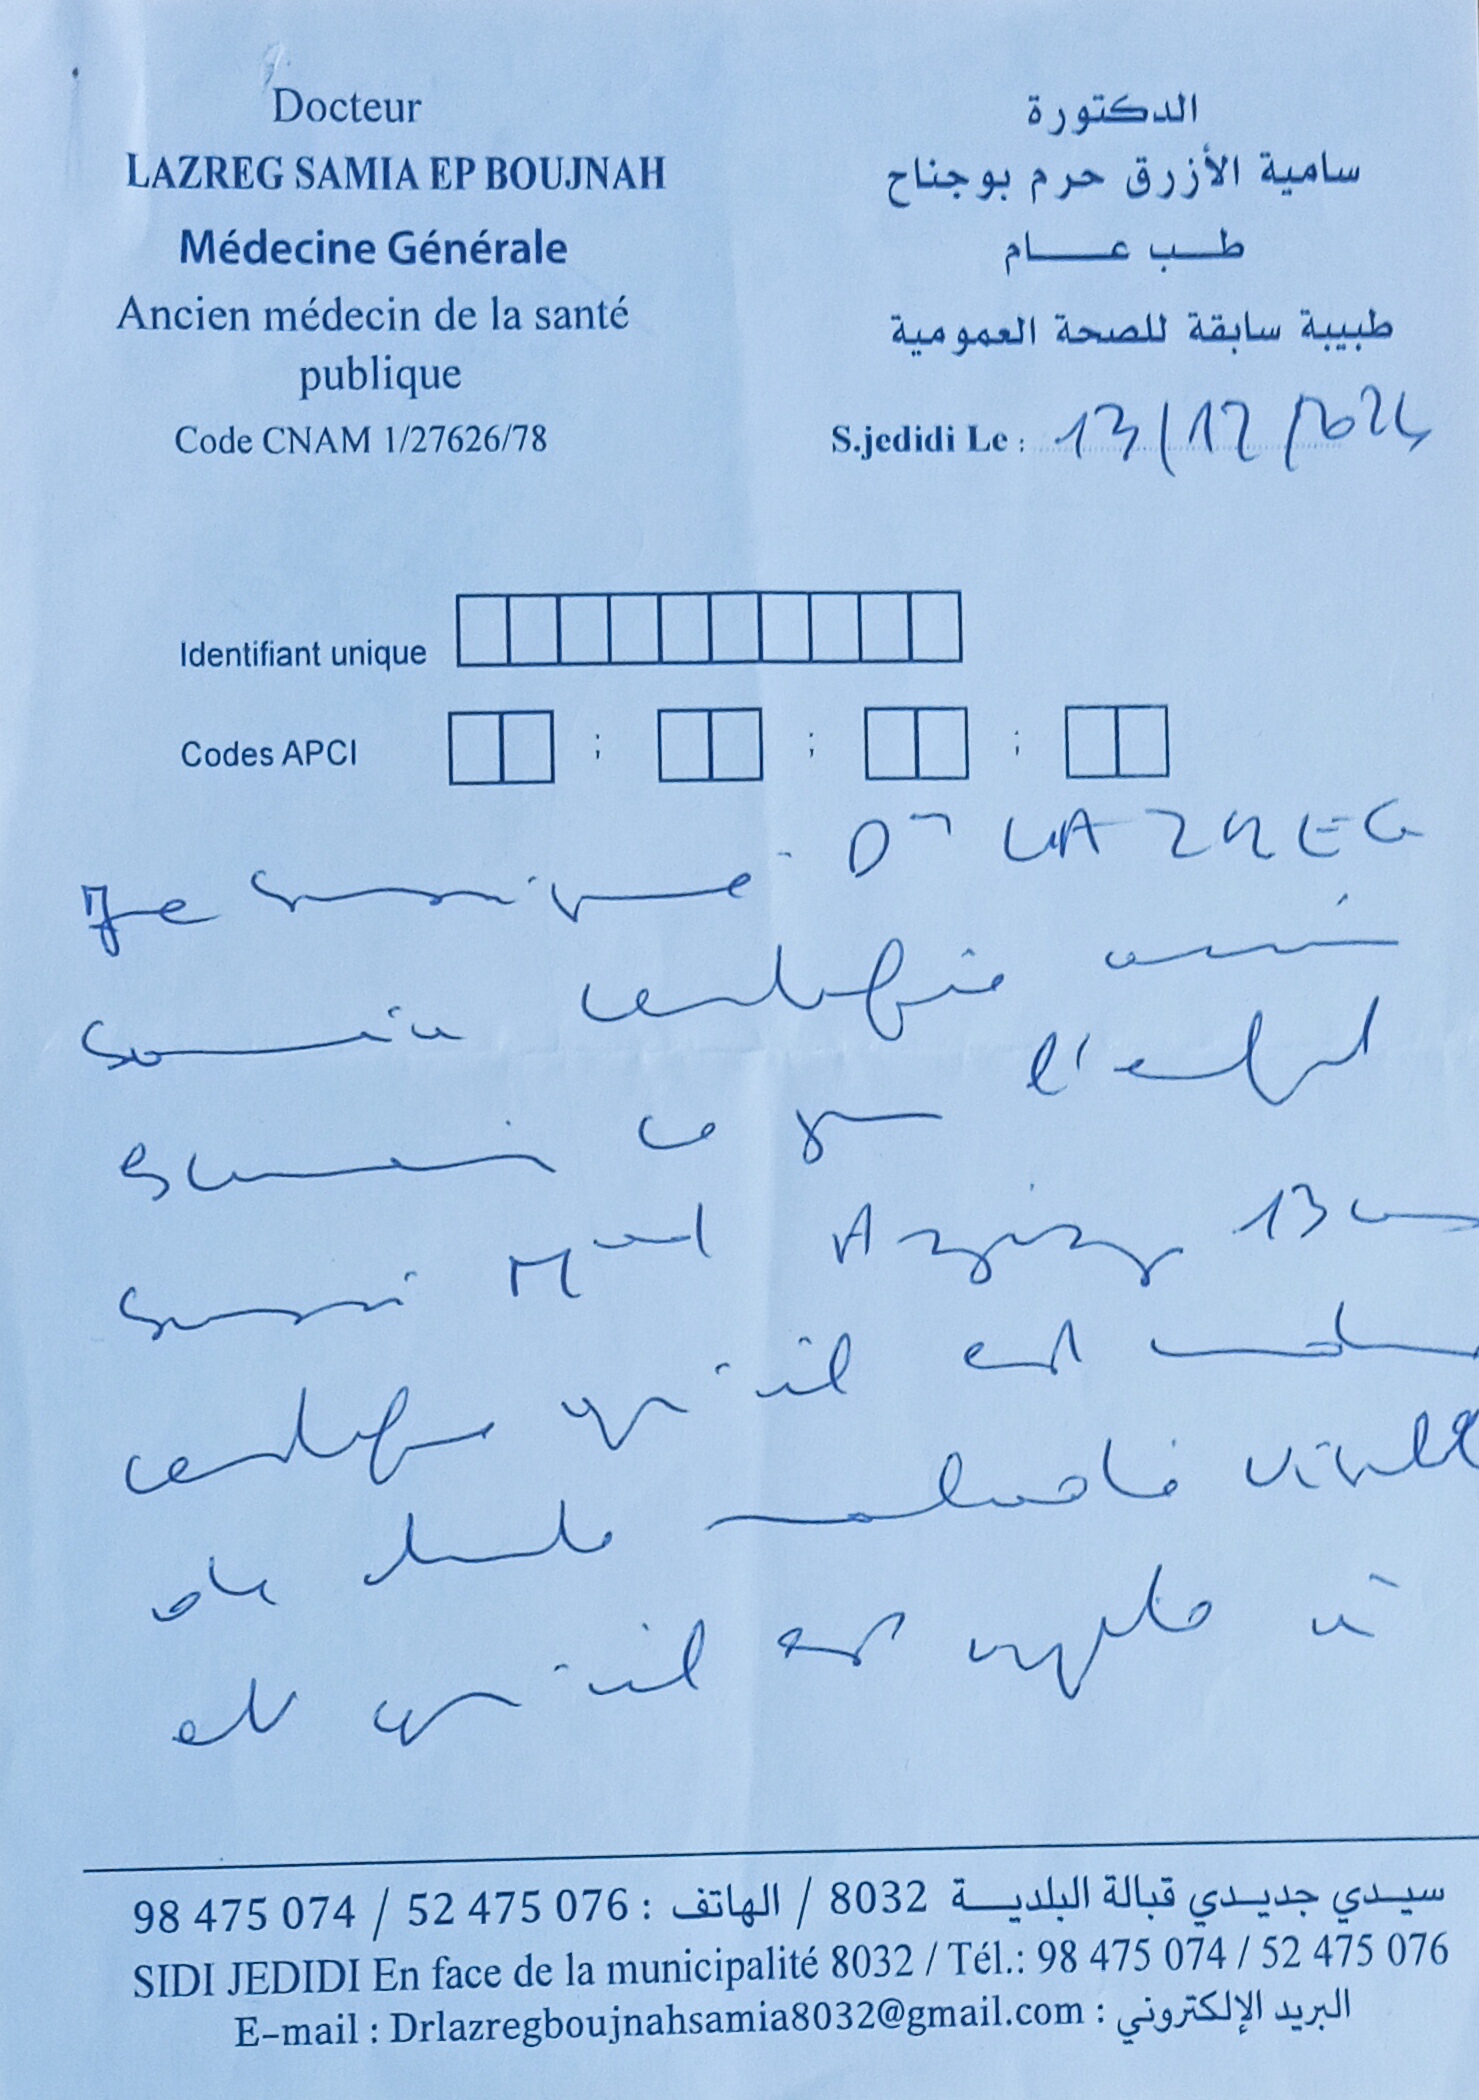 Docteur
LAZREG SAMIA EP BOUJNAH
Médecine Générale
Ancien médecin de la santé
publique
Code CNAM 1/27626/78
الدكتورة
سامية الأزرق حرم بوجناح
طب عام
طبيبة سابقة للصحة العمومية
S.jedidi Le : 13/12/2024
Identifiant unique
Codes APCI ; ; ;
Je soussigné Dr LAZREG
Samia certifie avoir
examiné ce jour l'enfant
Med Aziz 13 ans
certifie qu'il est
de toute maladie virale
et qu'il est apte à
سيدي جديدي قبالة البلدية 8032 / الهاتف : 52 475 076 / 98 475 074
SIDI JEDIDI En face de la municipalité 8032 / Tél.: 98 475 074 / 52 475 076
E-mail : Drlazregboujnahsamia8032@gmail.com : البريد الإلكتروني